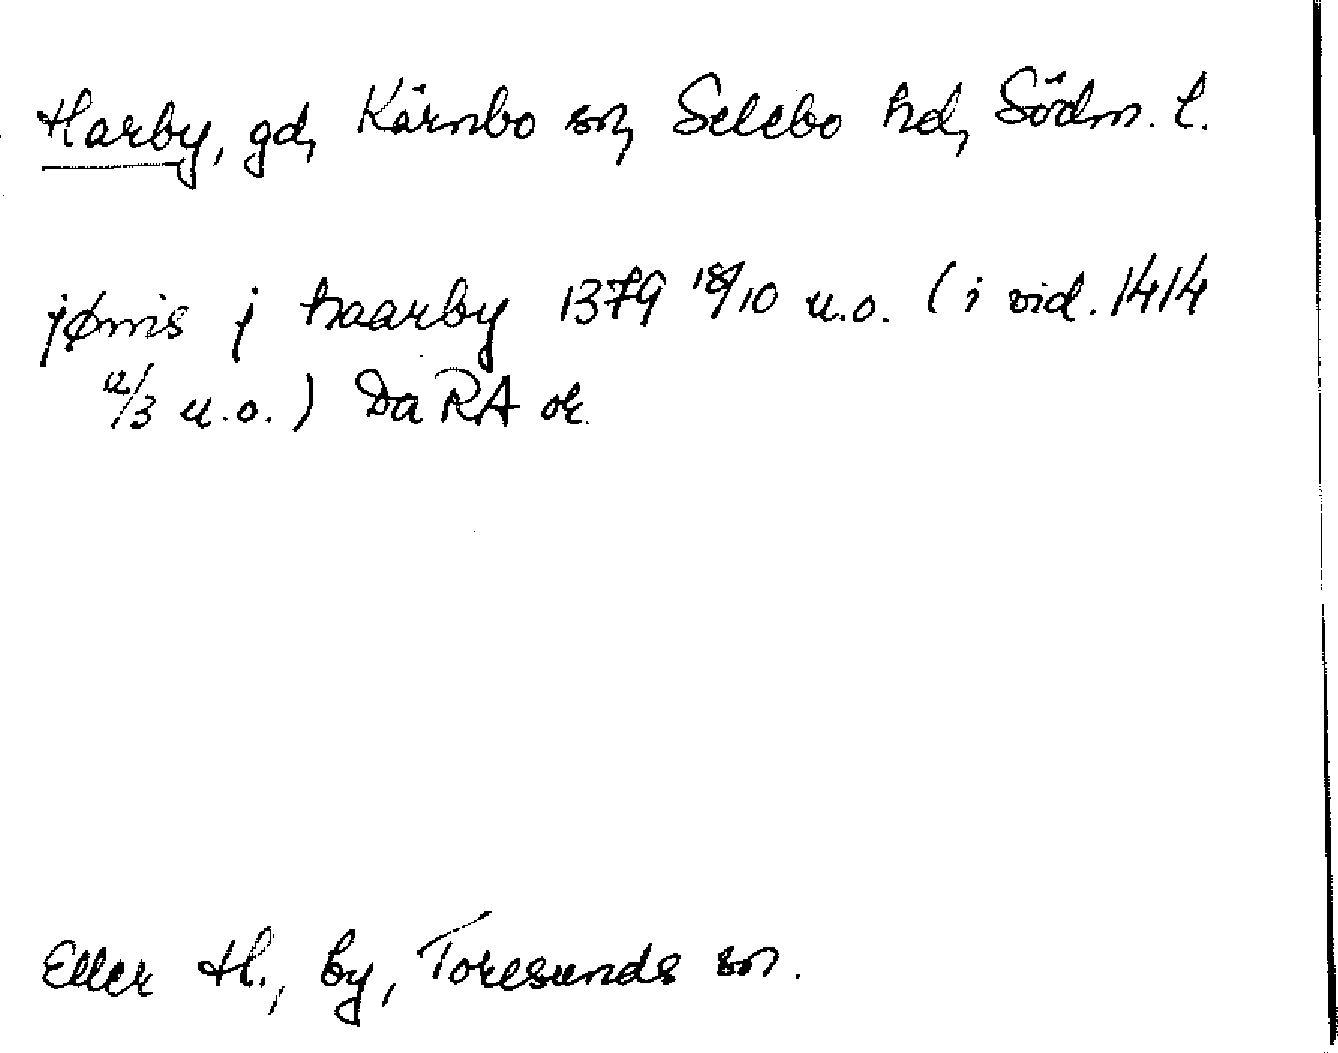 Harby, gd, Kärnbo sn, Selebo hd, Södm. l.
jønis j haarby 1379 18/10 u.o. (i vid. 1414
12/3 u.o.) Da RA or.
Eller H., by, Toresunds sn.